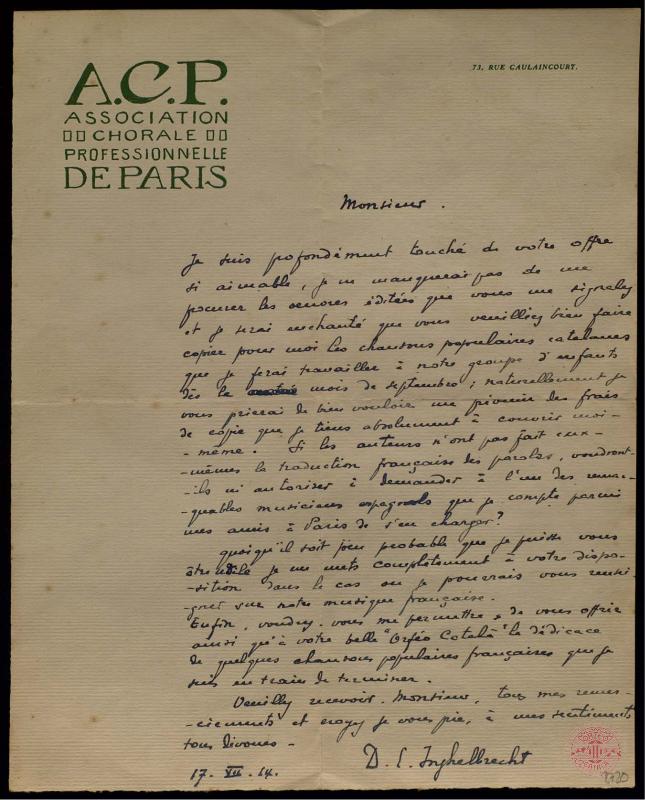 73, RUE CAULAINCOURT.
A.C.P.
ASSOCIATION
CHORALE
PROFESSIONNELLE
DE PARIS
Monsieur.
Je suis profondément touché de votre offre
si aimable, je ne manquerai pas de me
procurer les oeuvres éditées que vous me signalez
et je serai enchanté que vous veuilliez bien faire
copier pour moi les chansons populaires catalanes
que je ferai travailler à notre groupe d'enfants
dès le mois de septembre; naturellement je
vous prierai de bien vouloir me prévenir des frais
de copie que je tiens absolument à couvrir moi-
-même. Si les auteurs n'ont pas fait eux-
-mêmes la traduction française des paroles, voudront-
-ils m'autoriser à demander à l'un des remar-
quables musiciens espagnols que je compte parmi
mes amis à Paris de s'en charger?
quoiqu'il soit peu probable que je puisse vous
être utile je me mets complètement à votre dispo-
-sition dans le cas où je pourrais vous rensei-
-gner sur notre musique française.
Enfin, voudrez-vous me permettre de vous offrir
ainsi qu'à votre belle "Orféo Català" la dédicace
de quelques chansons populaires françaises que je
suis en train de terminer.
Veuillez recevoir, Monsieur, tous mes remer-
-ciements et croyez je vous prie, à mes sentiments
tous dévoués -
D. E. Inghelbrecht
17. VII. 14.